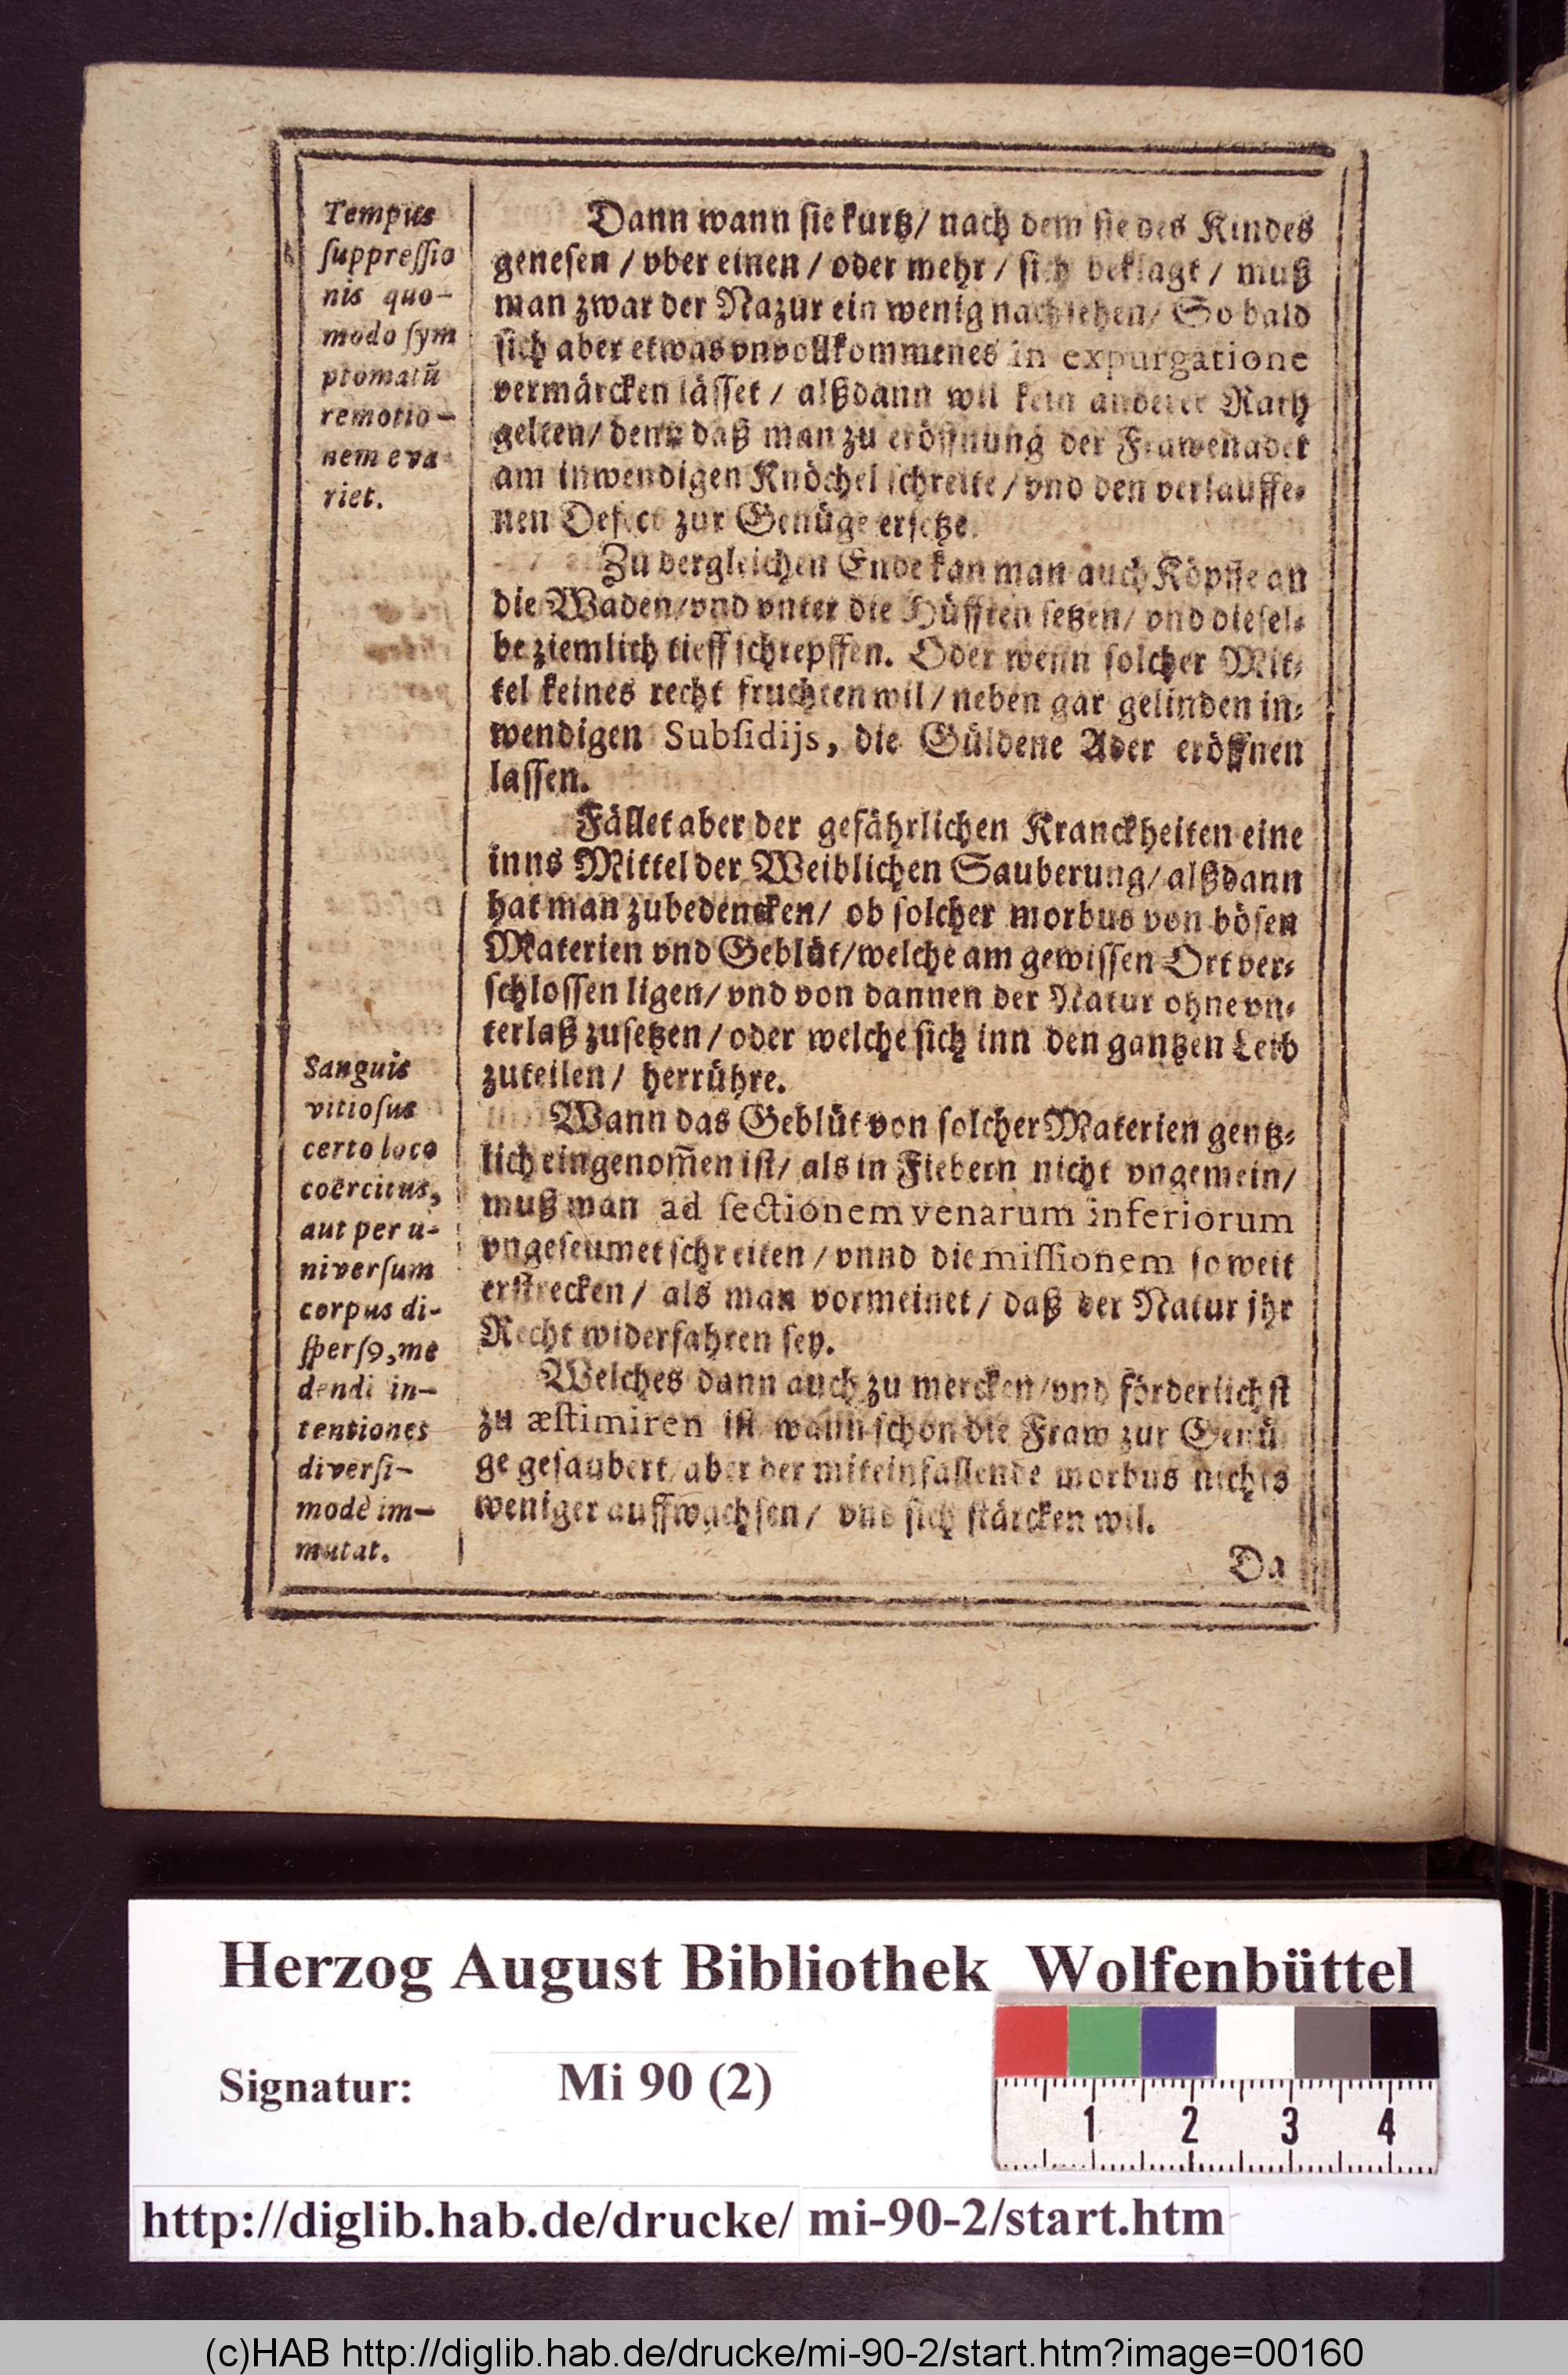 Tempus
ſuppreſſio
nis quo-
modo ſym
ptomatū
remotio-
nem eva
riet.
Dann wann ſie kurtz/ nach dem ſie des Kindes
geneſen / vber einen / oder mehr / ſich beklagt / muß
man zwar der Nazur ein wenig nachſehen/ So bald
ſich aber etwas vnvollkommenes in expurgatione
vermärcken läſſet / alßdann wil kein anderer Rath
gelten/ denn daß man zu eröffnung der Frawenader
am inwendigen Knöchel ſchreite / vnd den verlauffe⸗
nen Defect zur Genüge erſetze.
Zu dergleichen Ende kan man auch Köpffe an
die Waden/vnd vnter die Hüfften ſetzen/ vnd dieſel⸗
be ziemlich tieff ſchrepffen. Oder wenn ſolcher Mit⸗
tel keines recht fruchten wil / neben gar gelinden in⸗
wendigen Subſidijs, die Güldene Ader eröffnen
laſſen.
Fället aber der gefährlichen Kranckheiten eine
inns Mittel der Weiblichen Sauberung/ alßdann
hat man zubedencken/ ob ſolcher morbus von böſen
Materien vnd Geblüt/welche am gewiſſen Ort ver⸗
ſchloſſen ligen/ vnd von dannen der Natur ohne vn⸗
terlaß zuſetzen / oder welche ſich inn den gantzen Leib
zuteilen / herrühre.
Sanguis
vitioſus
certo loco
coërcitus,
aut per u-
niverſum
corpus di-
ſperſꝰ, me
dendi in-
tentiones
diverſi-
modè im-
mutat.
Wann das Geblüt von ſolcher Materien gentz⸗
lich eingenom̃en iſt/ als in Fiebern nicht vngemein/
muß man ad ſectionem venarum inferiorum
vngeſeumet ſchreiten / vnnd die miſſionem ſo weit
erſtrecken / als man vormeinet / daß der Natur jhr
Recht widerfahren ſey.
Welches dann auch zu mercken/vnd förderlichſt
zu æſtimiren iſt wann ſchon die Fraw zur Genü
ge geſaubert/ aber der miteinfallende morbus nichts
weniger auffwachſen / vnd ſich ſtärcken wil.
Da
Herzog August Bibliothek Wolfenbüttel
Signatur: Mi 90 (2)
1 2 3 4
http://diglib.hab.de/drucke/ mi-90-2/start.htm
(c)HAB http://diglib.hab.de/drucke/mi-90-2/start.htm?image=00160